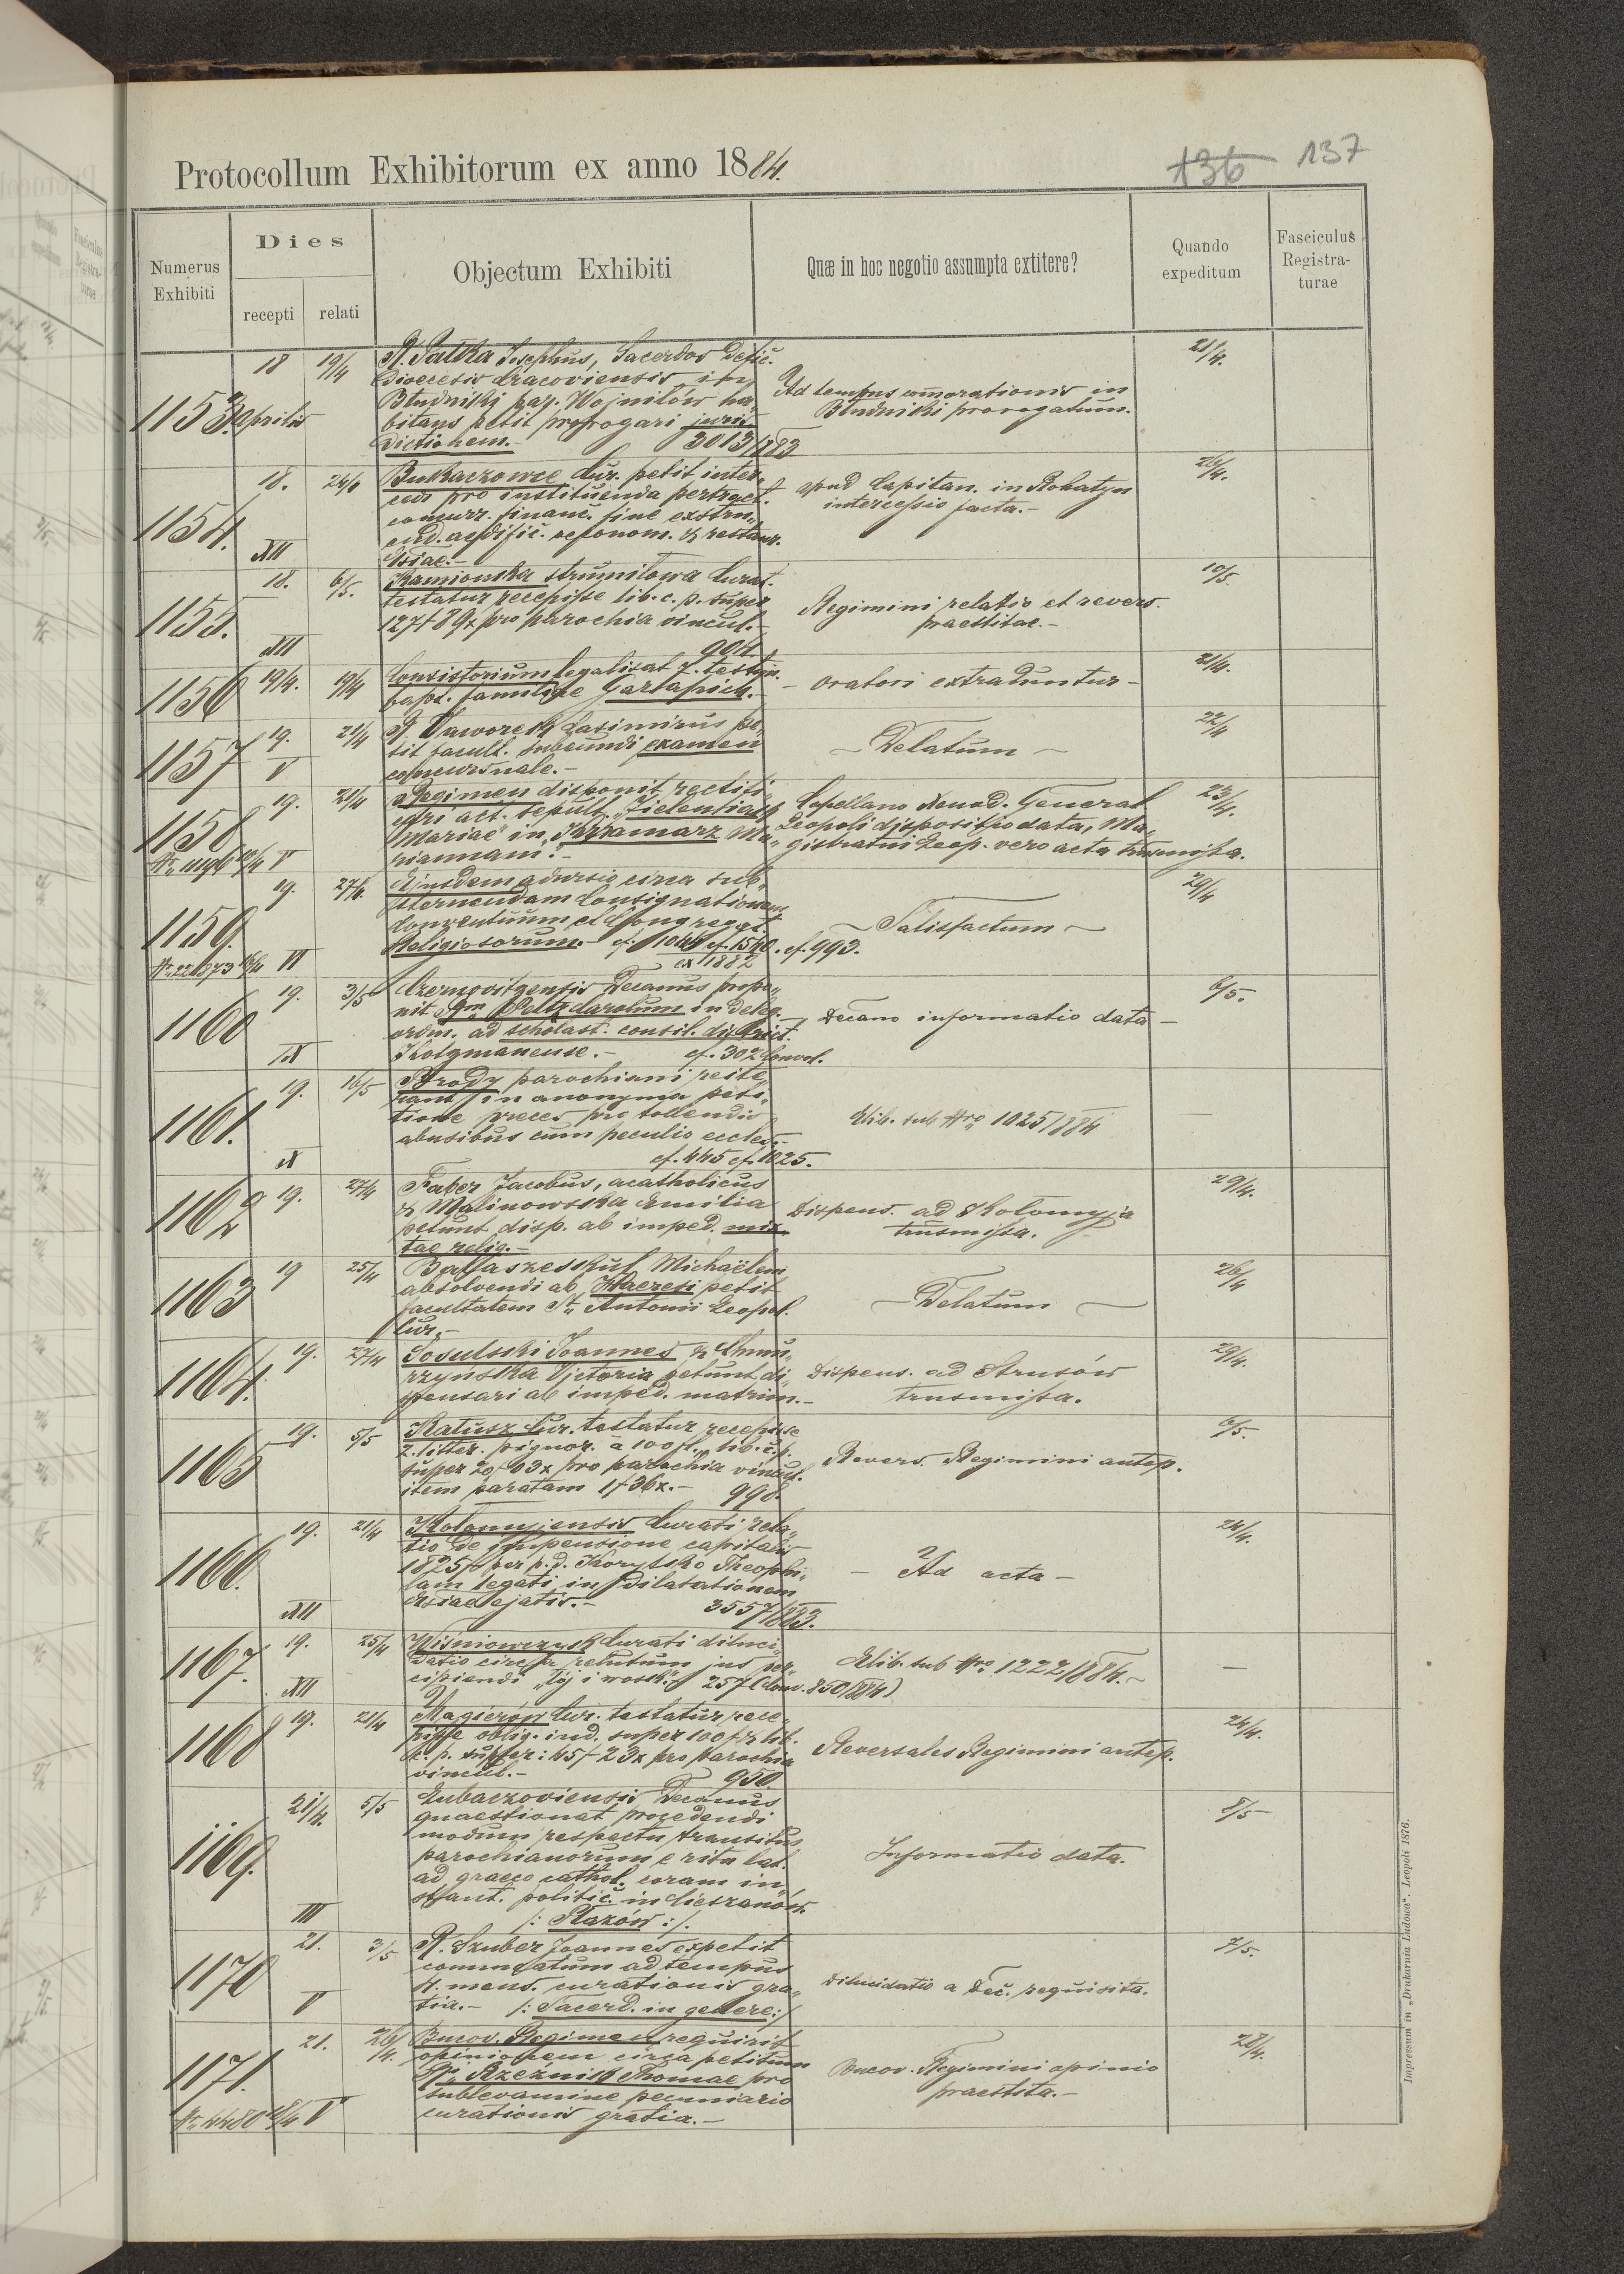 Protocollum Exhibitorum ex anno 1884.
136 137
Numerus Exhibiti
Dies
recepti
relati
Objectum Exhibiti
Quæ in hoc negotio assumpta extitere?
Quando expeditum
Fasciculus Registra-turae
1153.
18 Aprilis
19/4
R. Patka Josephus, Sacerdos Defic.
Dioecesis Cracoviensis in
Bludniki par. Wojniłów ha„
bitans petit prorogari juris„
dictionem.- 3013/1883
Ad tempus commorationis in
Bludniki prorogatum.
21/4.
1154.
18.
XII
24/4
Bukaczowce Cur. petit inter„
cedi pro instituenda pertract.
concurr. financ. fine exstru„
end. aedific. oeconom. & restaur.
Eccl'siae.-
apud Capitan. in Rohatyn
intercessio facta.-
26/4.
1155.
18.
XII
6/5.
Kamionska strumiłowa Curat.
testatur recepisse lib. c. p. super
127f 89x pro parochia vincul.-
904.
Regimini relatio et revers.
praestitae.-
10/5
1156
19/4.
19/4
Consistorium legalisat 7. testim.
bapt. familiae Gartapich.-
- Oratori extraduntur -
21/4.
1157
19.
V
21/4
R. Jaworek Casimirus pe„
tit facult. subeundi examen
concursuale.-
- Delatum -
22/4
1158
19.
V
21/4
Regimen disponit rectifi„
cari act. sepult. „Zielenfiak
Mariae" in „Krramarz Ma„
riannam".-
Capellano Nosod. General.
Leopoli dispositio data, Ma„
gistratui Leop. vero acta trnsmissa.
23/4.
1159.
19.
VI
27/4.
Ejusdem adursio circa sub„
sternendam Consignationem
Conventuum et Congregat.
Religiosorum.- cf. 1044 cf. 1540. cf. 993.
ex 1882
- Satisfactum -
29/4
1160
19.
IX
3/5
Czernovitzensis Decanus propo„
nit Rm Peltz Carolum in deleg.
ordin. ad scholast. consil. district.
Kotzmanense.- cf. 302 Convol.
- Decano informatio data -
6/5.
1161.
19.
X
16/5
Brody parochiani reite„
rant in anonyma peti„
tione preces pro tollendis
abusibus cum peculio eccles.-
cf. 445 cf. 1025.
Elib. sub Nro 1025/884
-
1162
19.
27/4
Faber Jacobus, acatholicus
& Malinowska Emilia
petunt disp. ab imped. mix„
tae relig.-
Dispens. ad Kolomyja
trnsmissa.
29/4.
1163
19
25/4
Ballaszeskul Michaëlem
absolvendi ab Haeresi petit
facultatem St. Antonii Leopol.
Cur.-
- Delatum -
26/4
1164.
19.
27/4
Sosulski Joannes & Chmu„
rzyńska Victoria petunt di„
spensari ab imped. matrim.-
Dispens. ad Strusów
trnsmissa.
29/4.
1165
19.
5/5
Katusz Cur. testatur recepisse
2. litter. pignor. a 100 fl., lib. c. p.
super 20f 03x pro parochia vincul.
item paratam 1f 36x.- 998.
Revers. Regimini antep.
6/5.
1166.
19.
XII
21/4
Kolomyjensis Curati rela„
tio de impensione capitalis
1825f per p. d. Korytsko Theophi„
lam legati in dilatationem
Ecclsiae ejatis.- 3557/883.
- Ad acta -
24/4.
1167.
19.
XII
25/4
Wiśniowczyk Curati diluci„
datio circa petitum jus per„
cipiendi „łój i wosk". cf 257 (Conv. 850/884)
Elib. sub Nro 1222/884.-
-
1168
19.
21/4
Magierów Cur. testatur rece„
pisse oblig. ind. super 100f & lib.
c. p. super: 45f 23x pro parochia
vincul.- 950.
Reversales Regimini antep.
24/4.
1169.
21/4.
III
5/5
Lubaczoviensis Decanus
quaestionat procedendi
modum respectu transitus
parochianorum e ritu lat.
ad graeco cathol. coram in„
stant. politic. in Cieszanów.
/: Płazów :/.
Informatio data.
8/5-
1170
21.
V
3/5
R. Szuber Joannes expetit
commeatum ad tempus
4. mens. curationis gra„
tia.- /: Sacerd. in genere :/
Dilucidatio a Dec. requisita.
7/5.
1171.
21.
V
26/4.
Bucov. Regimen requirit
opinionem circa petitum
R. Rzeźnik Thomae pro
sublevamine pecuniario
curationis gratia.-
Bucov. Regimini opinio
praestita.-
28/4.
Impressum in „Drukarnia Ludowa". Leopoli 1876.